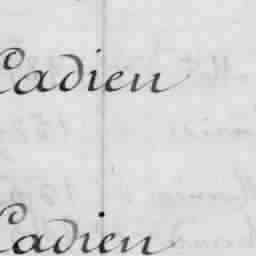 Cadien
Cadien